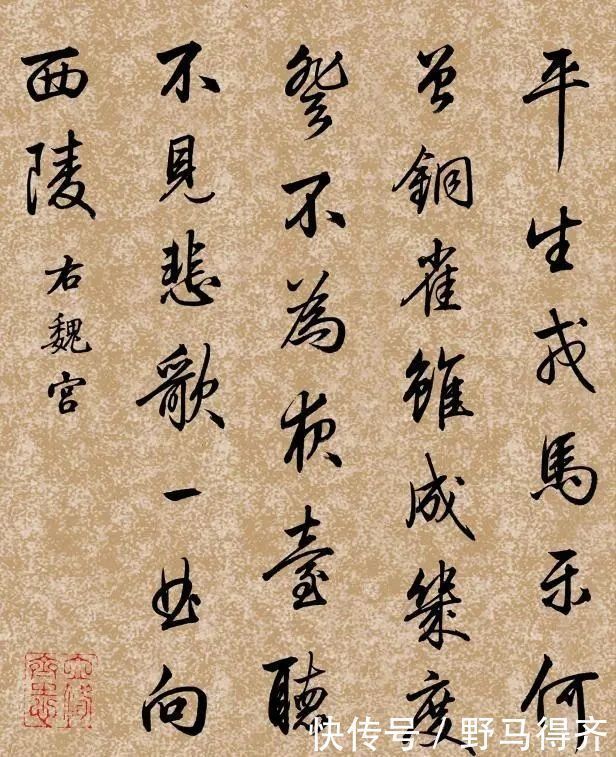 平生戎馬樂何
曾銅雀雖成幾度
登不為夜臺聽
不見悲歌一曲向
西陵
右魏宮
快传号 / 野马得齐